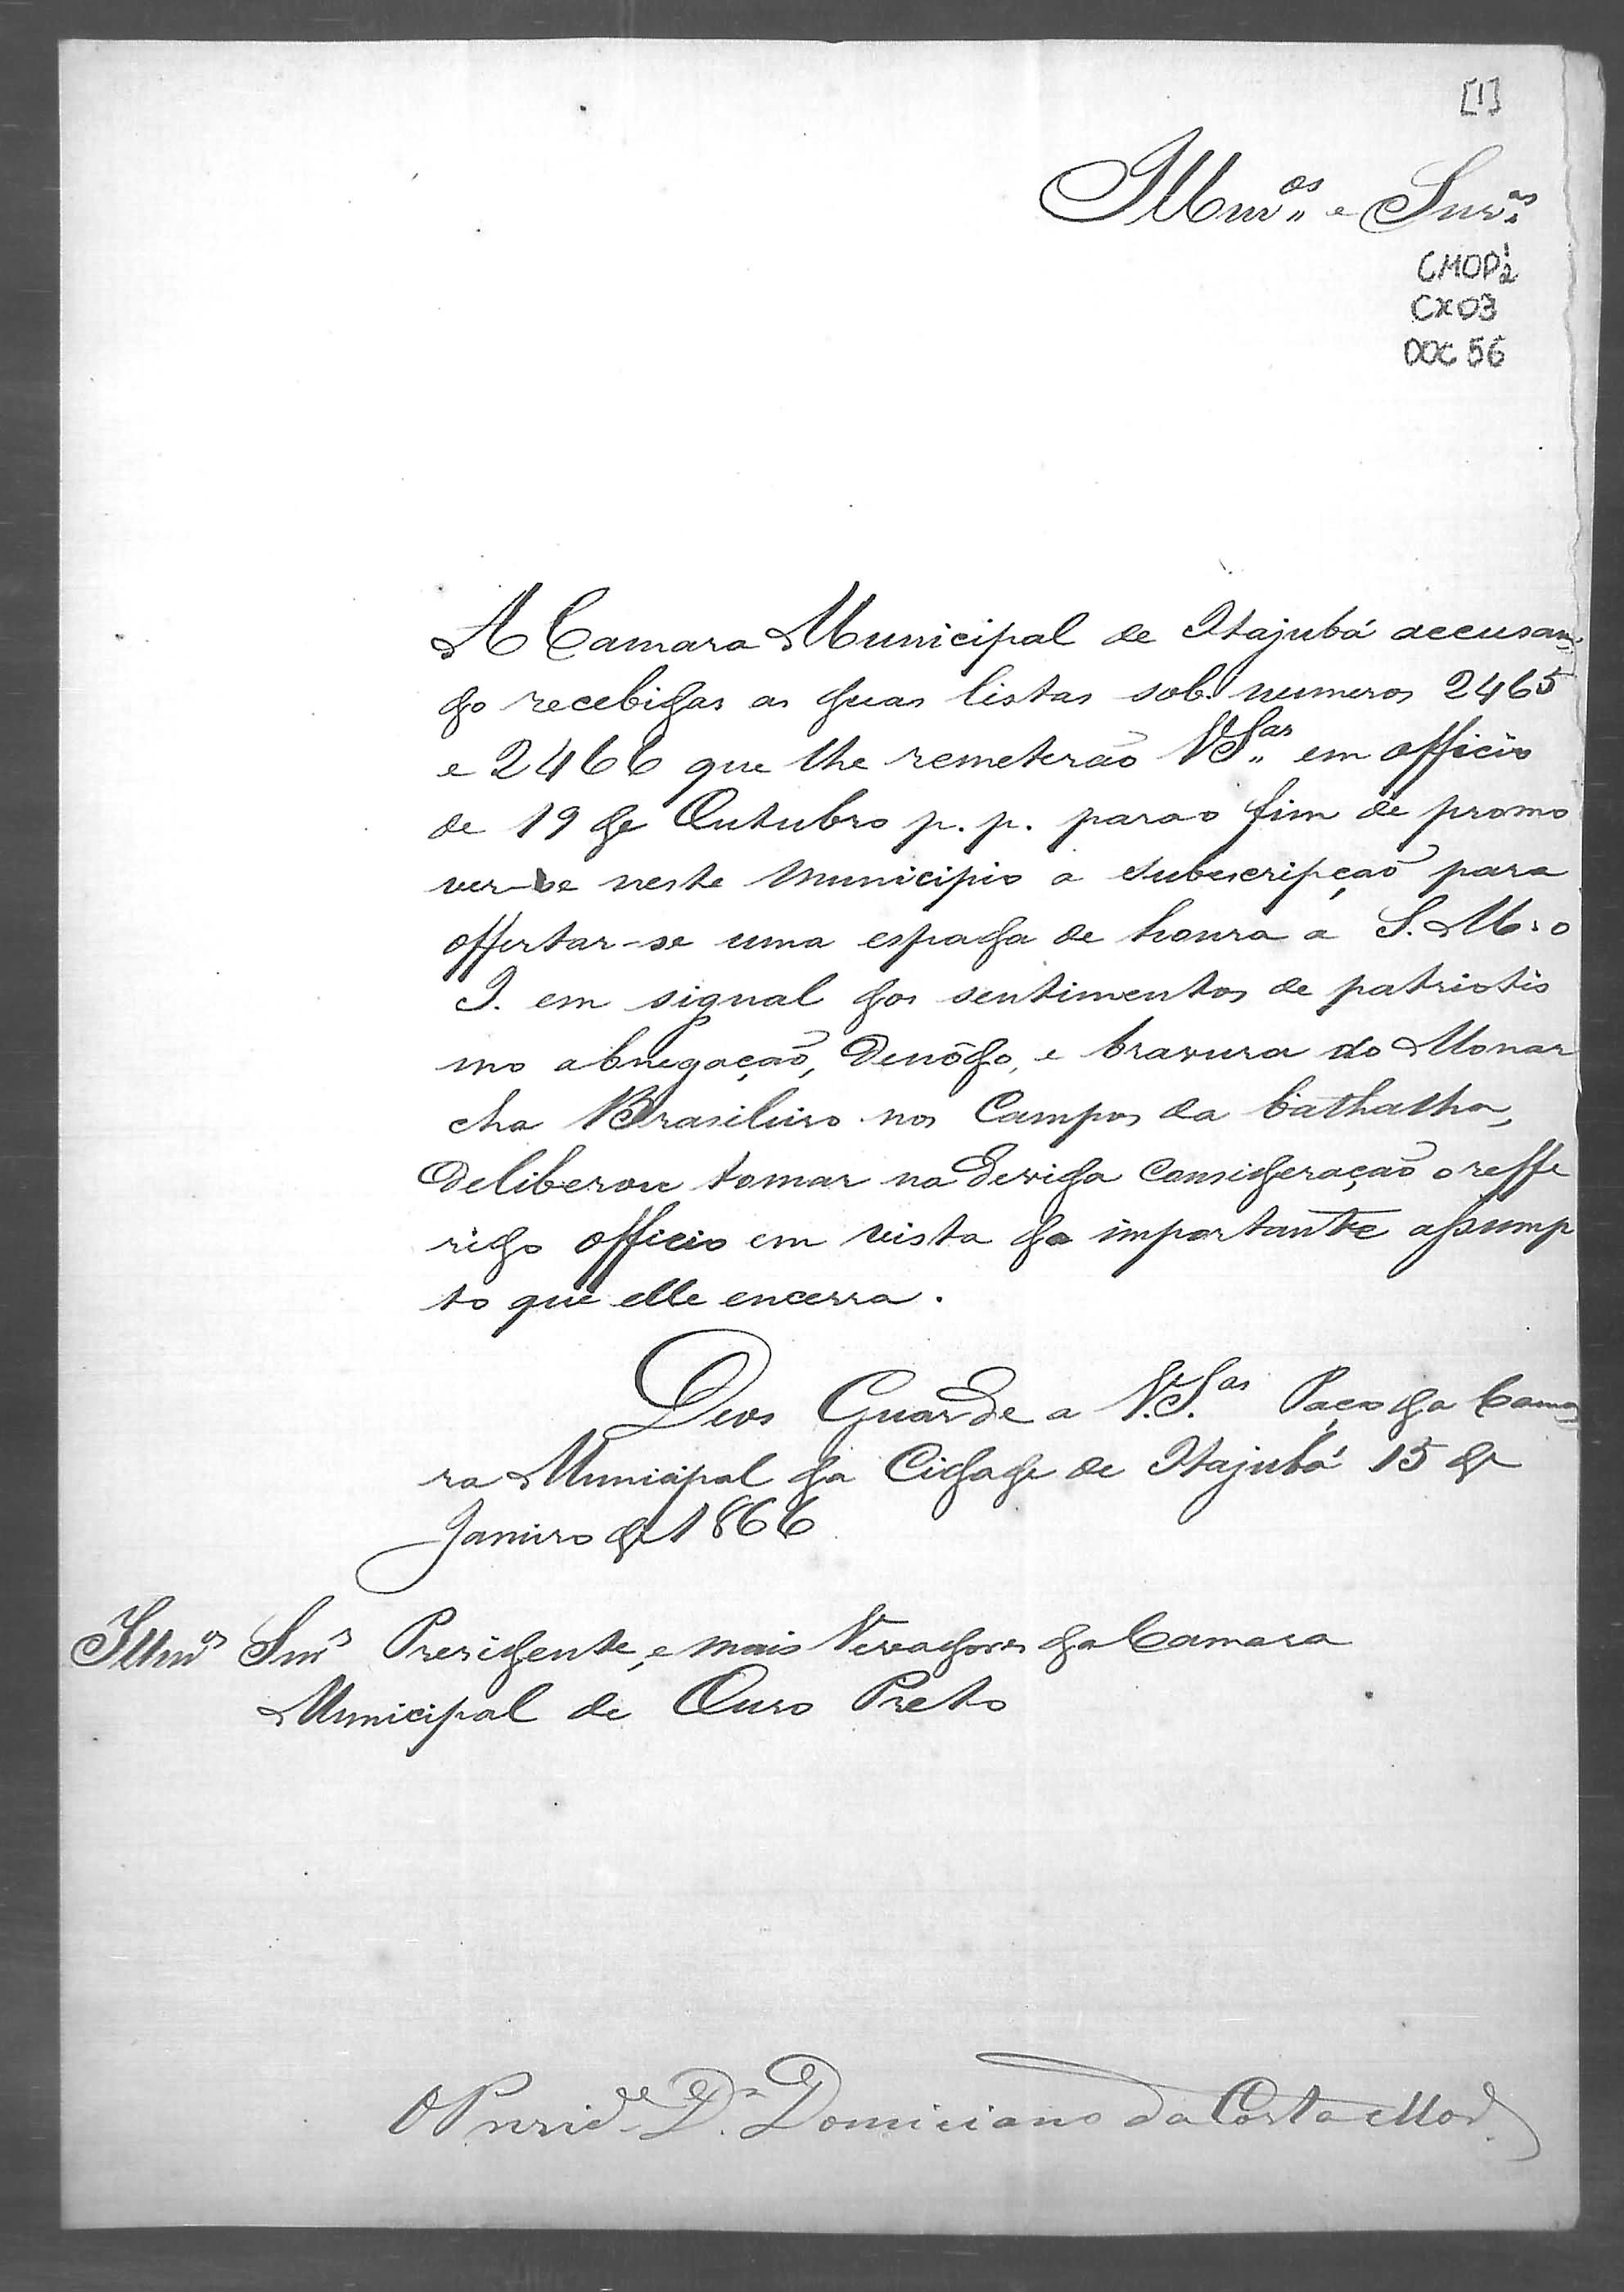 [1]
Illmos e Snres
CMOP 1/2
CX 03
DOC 56
A Camara Municipal de Itajubá accusan-
do recebidas as duas listas sob numeros 2465
e 2466 que lhe remeterão VSas em officio
de 19 de Outubro p. p. para o fim de promo
ver-se neste Municipio a subescripção para
offertar-se uma espada de honra a S. M. o
I. em signal dos sentimentos de patriotis
mo abnegação, denôdo, e bravura do Monar
cha Brasileiro nos Campos da bathalha,
deliberou tomar na devida consideração o reffe
rido officio em vista do importante assump
to que elle encerra.
Deos Guarde a V.Sas Paço da Cama
ra Municipal da Cidade de Itajubá 15 de
Janeiro de 1866
Illmos Snrs Presidente, e mais Vereadores da Camara
Municipal de Ouro Preto
O Preside Dr Domiciano da Costa